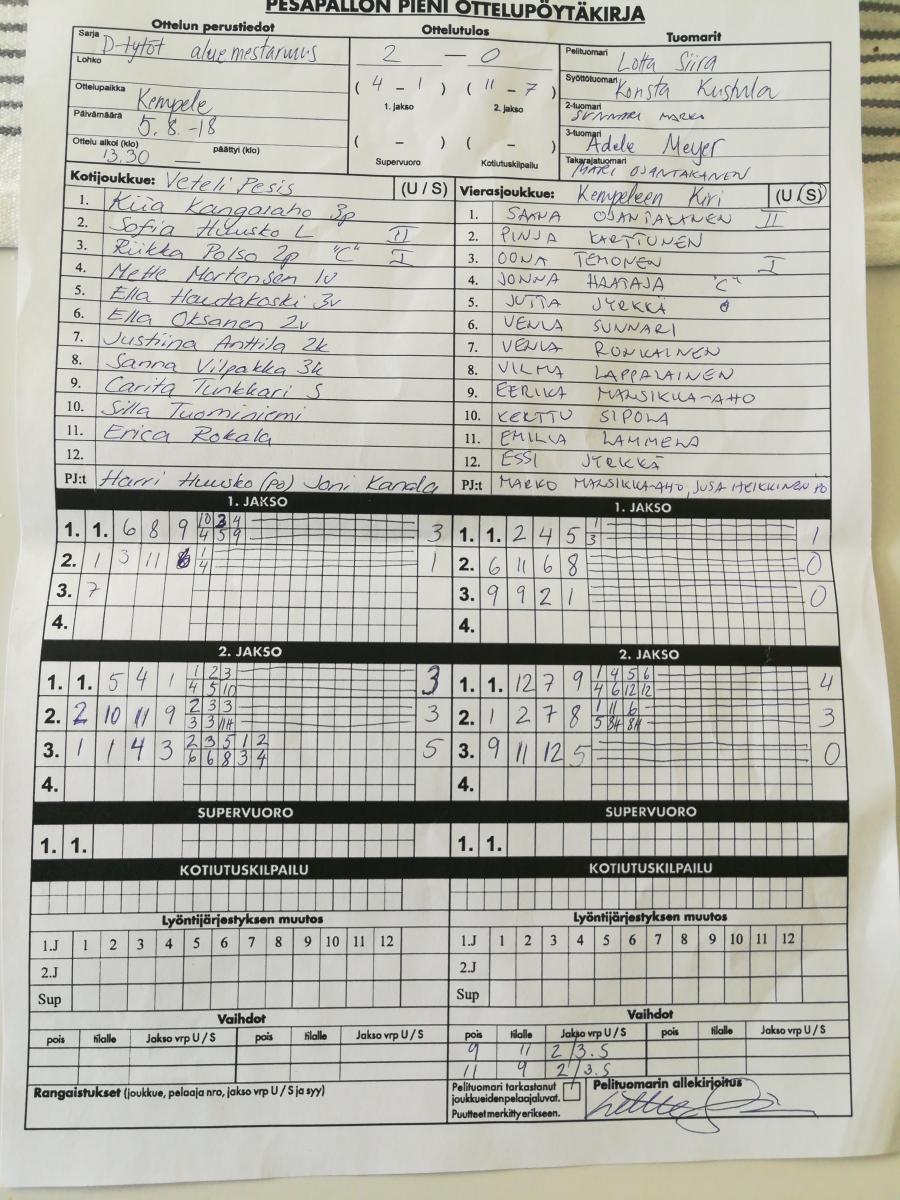 PESÄPALLON PIENI OTTELUPÖYTÄKIRJA
Ottelun perustiedot
Sarja D-tytöt aluemestaruus
Lohko
Ottelupaikka Kempele
Päivämäärä 5.8.-18
Ottelu alkoi (klo) 13.30 päättyi (klo)
Ottelutulos
2 — 0
( 4 - 1 ) ( 11 - 7 )
1. jakso 2. jakso
( - ) ( - )
Supervuoro Kotiutuskilpailu
Tuomarit
Pelituomari Lotta Siira
Syöttötuomari Konsta Kustula
2-tuomari SUNNARI MARKO
3-tuomari Adele Meyer
Takarajatuomari MARI OJANTAKANEN
Kotijoukkue: Veteli Pesis (U / S)
1. Kiia Kangasaho 3p
2. Sofia Huusko L II
3. Riikka Polso 2p "C" I
4. Mette Mortensen 1v
5. Ella Hautakoski 3v
6. Ella Oksanen 2v
7. Justiina Anttila 2k
8. Sanna Vilpakka 3k
9. Carita Tunkkari S
10. Silla Tuominiemi
11. Erica Rokala
12.
PJ:t Harri Huusko (PO) Joni Kanda
Vierasjoukkue: Kempeleen Kiri (U / S)
1. SAANA OJANTAKANEN II
2. PINJA KARTTUNEN
3. OONA TEMONEN I
4. JONNA HAATAJA "C"
5. JUTTA JYRKKÄ
6. VENLA SUNNARI
7. VENLA RONKAINEN
8. VILMA LAPPALAINEN
9. EERIKA MANSIKKA-AHO
10. KERTTU SIPOLA
11. EMILIA LAMMELA
12. ESSI JYRKKÄ
PJ:t MARKO MANSIKKA-AHO, JUSA HEIKKINEN PO
1. JAKSO
1. 1. 6 8 9 10 3 4 3
4 5 9
2. 1 3 11 6 1 1
4
3. 7
4.
1. JAKSO
1. 1. 2 4 5 1 1
3
2. 6 11 6 8 0
3. 9 9 2 1 0
4.
2. JAKSO
1. 1. 5 4 1 1 2 3 3
4 5 10
2. 2 10 11 9 2 3 3 3
3 3 11H
3. 1 1 4 3 2 3 5 1 2 5
6 6 8 3 4
4.
2. JAKSO
1. 1. 12 7 9 1 4 5 6 4
4 6 12 12
2. 1 2 7 8 1 11 6 3
5 8H 8H
3. 9 11 12 5 0
4.
SUPERVUORO
1. 1.
SUPERVUORO
1. 1.
KOTIUTUSKILPAILU
KOTIUTUSKILPAILU
Lyöntijärjestyksen muutos
1.J 1 2 3 4 5 6 7 8 9 10 11 12
2.J
Sup
Lyöntijärjestyksen muutos
1.J 1 2 3 4 5 6 7 8 9 10 11 12
2.J
Sup
Vaihdot
pois tilalle Jakso vrp U / S pois tilalle Jakso vrp U / S
Vaihdot
pois tilalle Jakso vrp U / S pois tilalle Jakso vrp U / S
9 11 2/3.S
11 9 2/3.S
Rangaistukset (joukkue, pelaaja nro, jakso vrp U / S ja syy)
Pelituomari tarkastanut
joukkueidenpelaajaluvat.
Puutteet merkitty erikseen.
Pelituomarin allekirjoitus